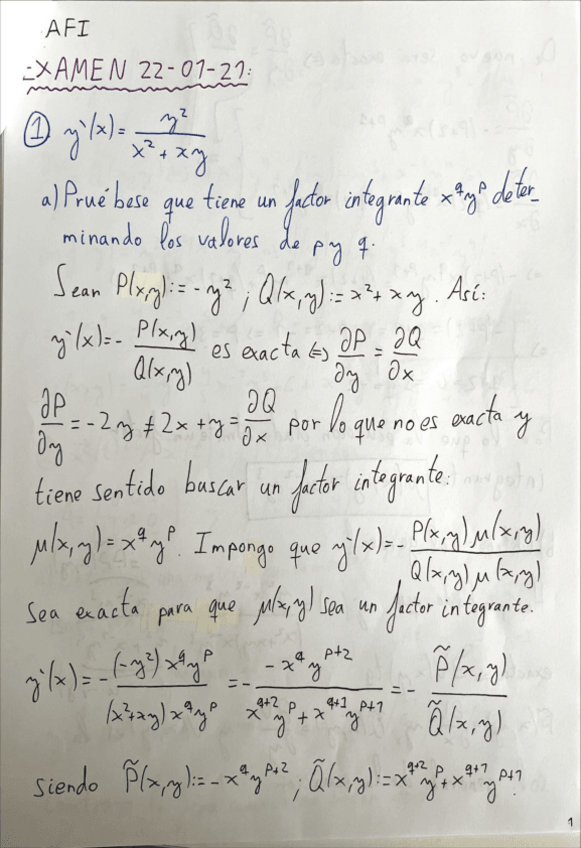 AFI
EXAMEN 22-01-21:
① y'(x) = y² / (x² + xy)
a) Pruébese que tiene un factor integrante x^q y^p deter-
minando los valores de p y q.
Sean P(x,y) := -y² ; Q(x,y) := x² + xy. Así:
y'(x) = - P(x,y) / Q(x,y) es exacta ⇔ ∂P/∂y = ∂Q/∂x
∂P/∂y = -2y ≠ 2x + y = ∂Q/∂x por lo que no es exacta y
tiene sentido buscar un factor integrante:
μ(x,y) = x^q y^p. Impongo que y'(x) = - P(x,y) μ(x,y) / Q(x,y) μ(x,y)
sea exacta para que μ(x,y) sea un factor integrante.
y'(x) = - (-y²) x^q y^p / (x²+xy) x^q y^p = - -x^q y^{p+2} / x^{q+2} y^p + x^{q+1} y^{p+1} = - P̃(x,y) / Q̃(x,y)
siendo P̃(x,y) := -x^q y^{p+2} ; Q̃(x,y) := x^{q+2} y^p + x^{q+1} y^{p+1}.
1